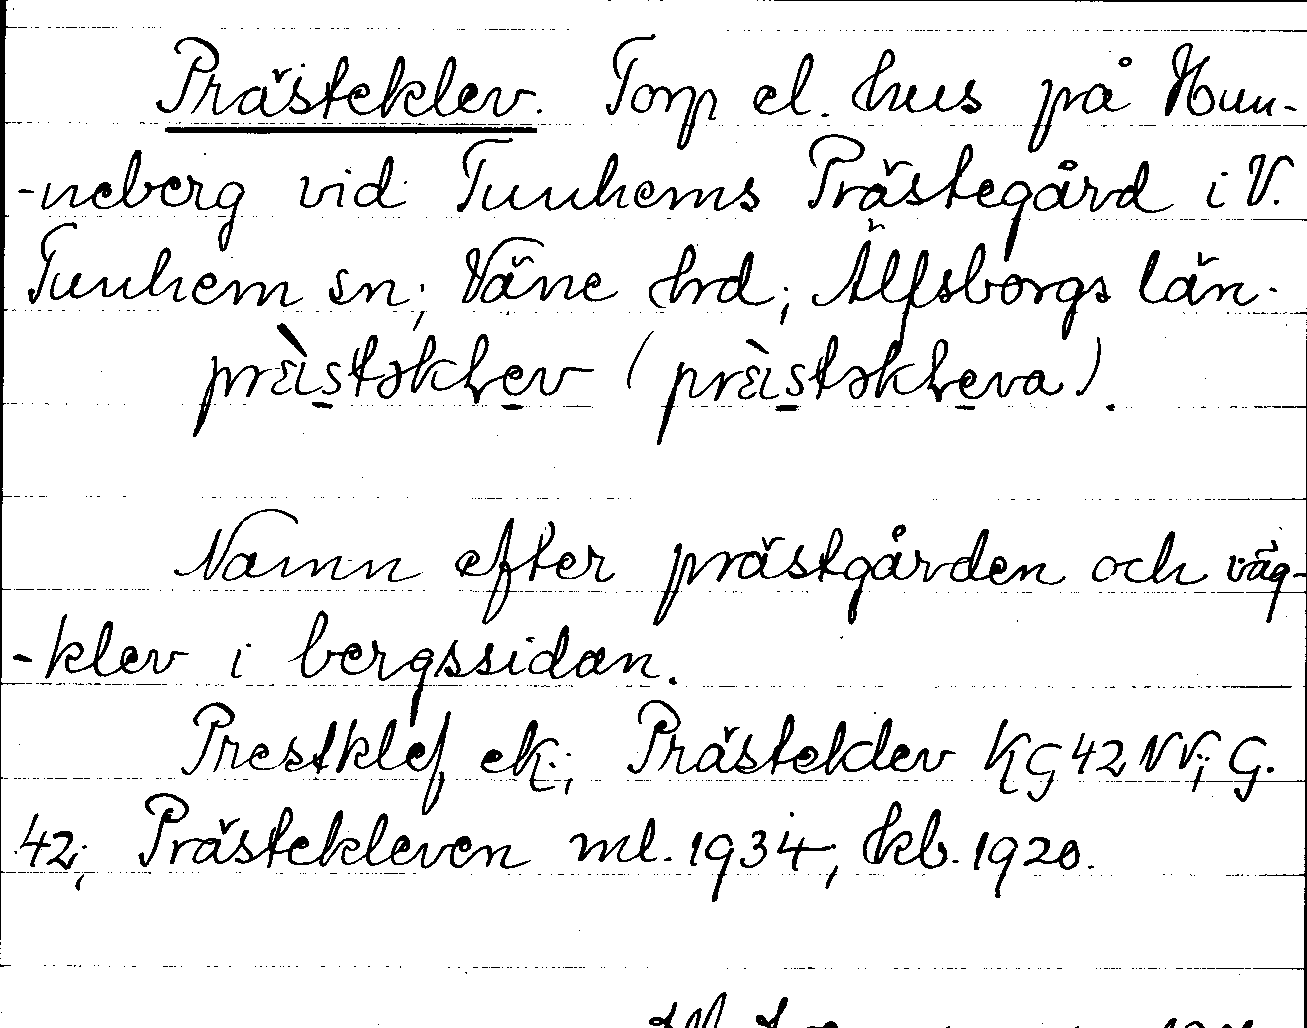 Prästeklev. Torp el. hus på Hun-
-neberg vid Tunhems Prästegård i V.
Tunhem sn; Väne hrd; Älfsborgs län.
prɛ̀istəklev (prɛ̀istəkleva).
Namn efter prästgården och väg-
-klev i bergssidan.
Prestklef, ek.; Prästeklev KG 42 NV; G.
42; Prästekleven ml. 1934; kb. 1920.